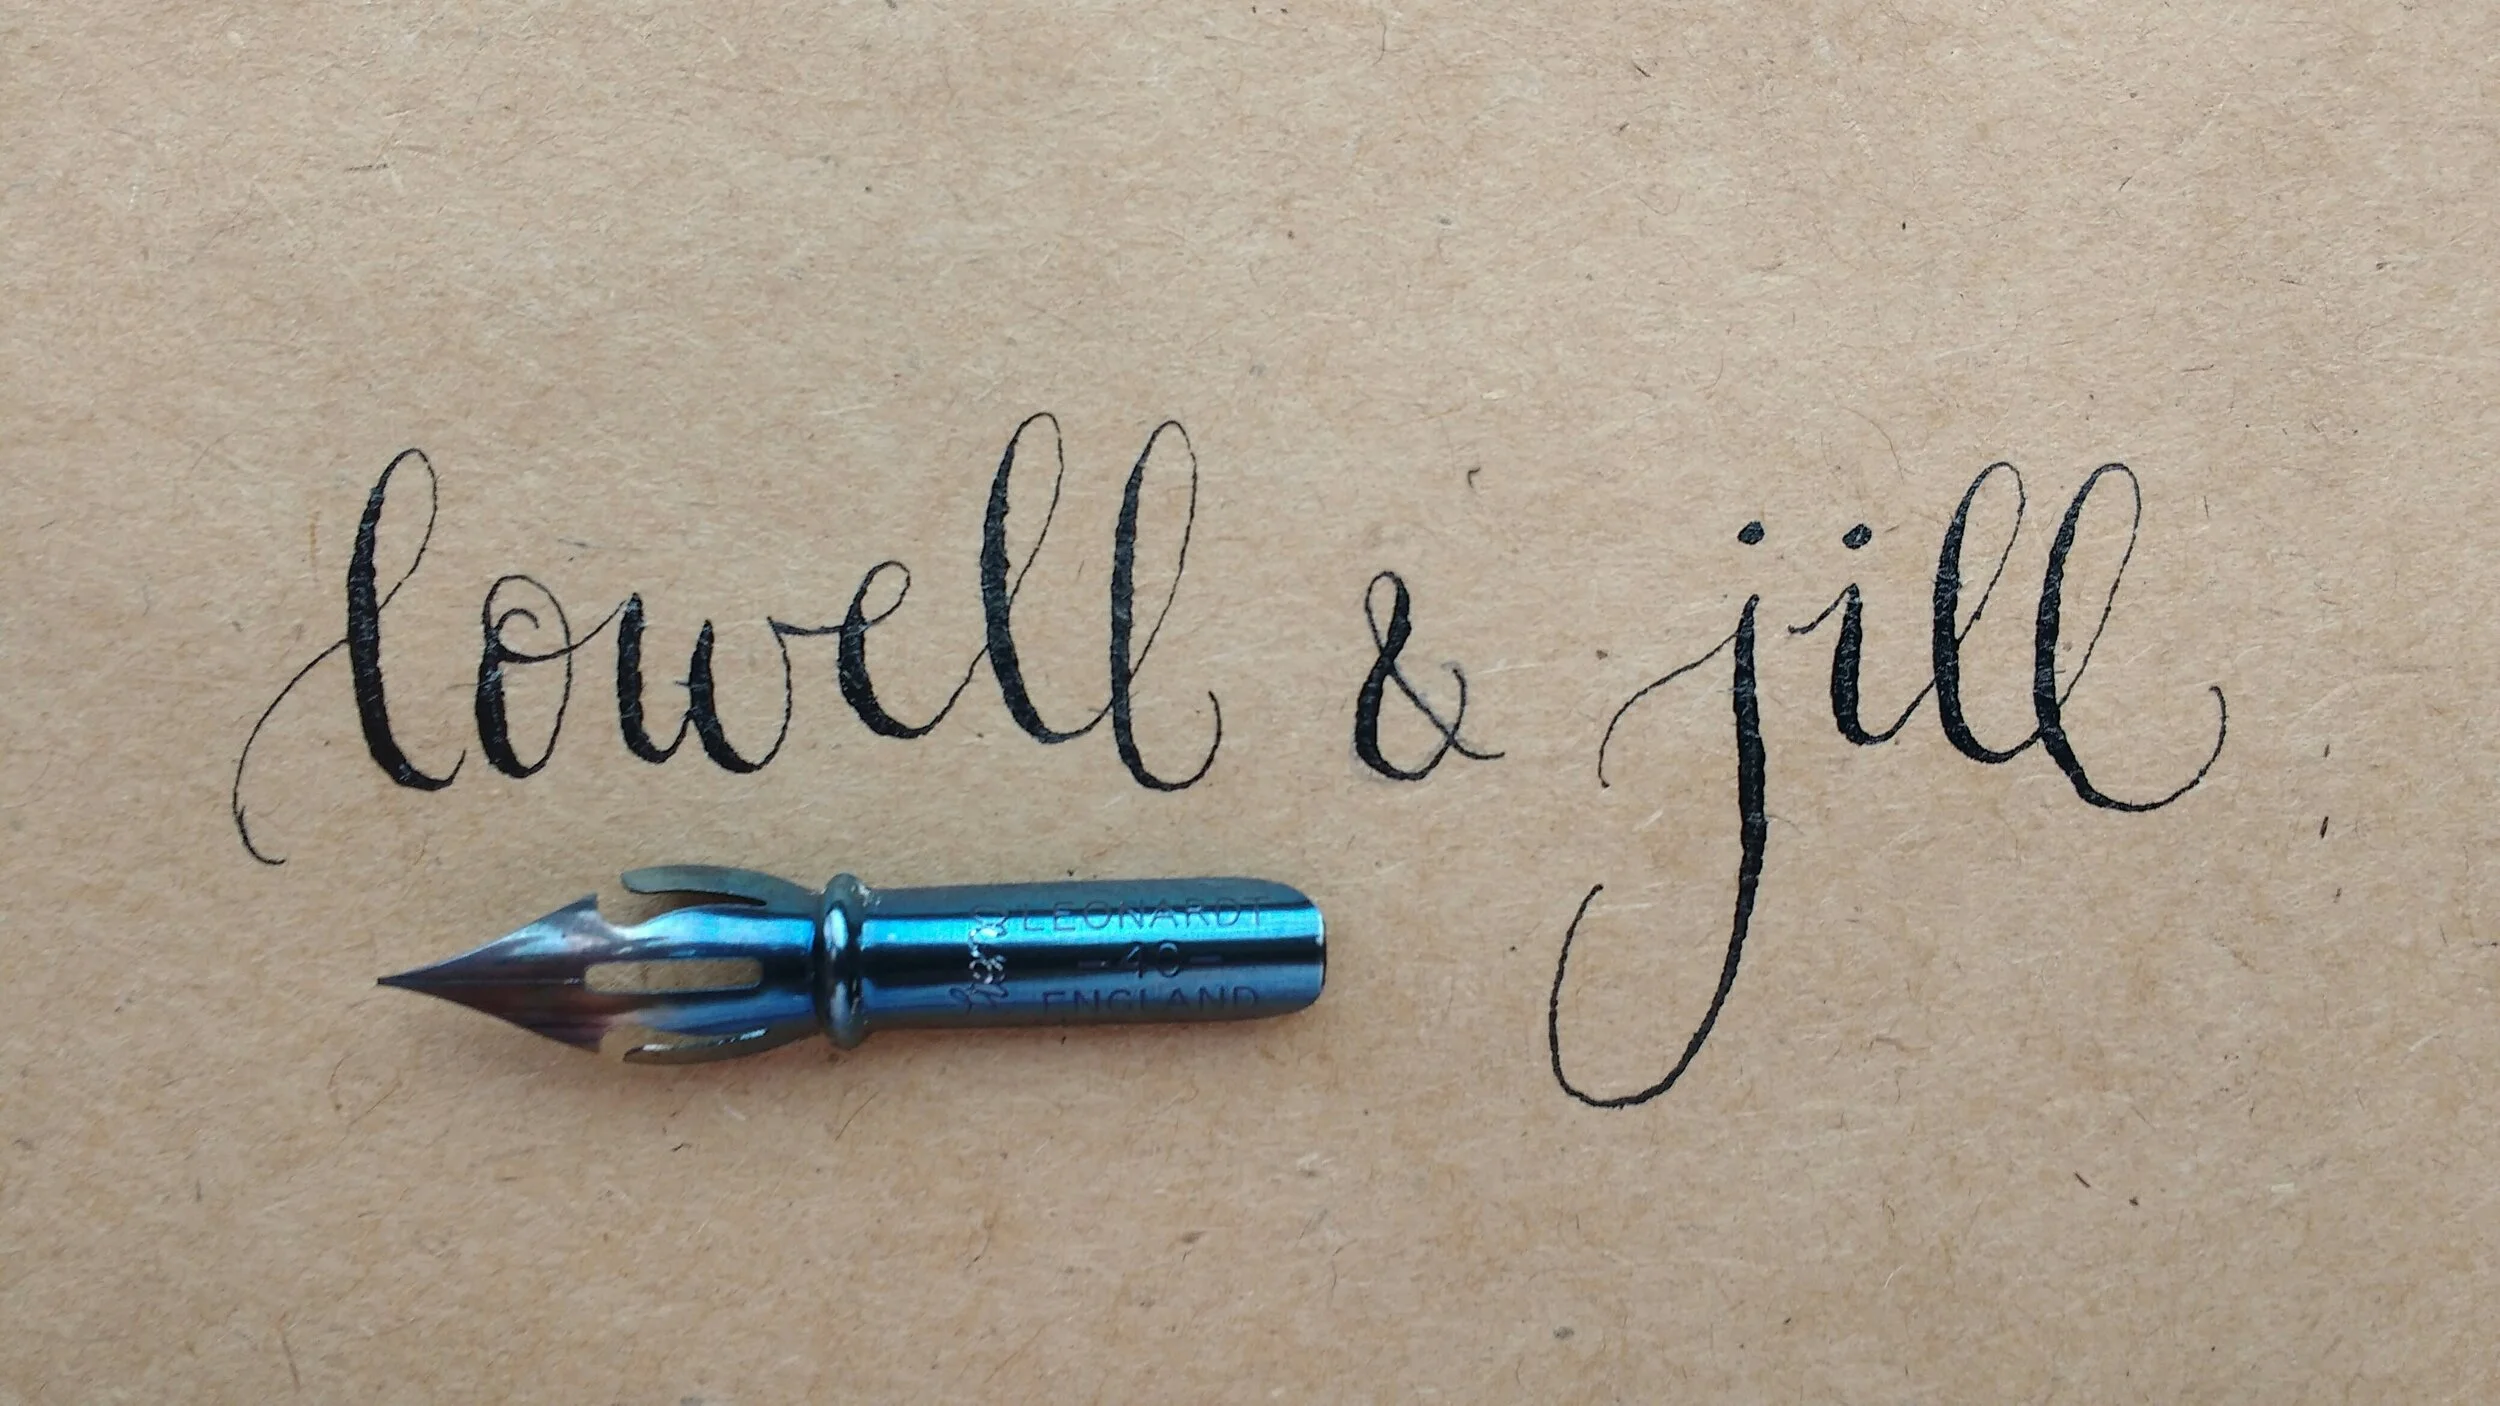 lowell & jill
LEONARDT
-40-
ENGLAND